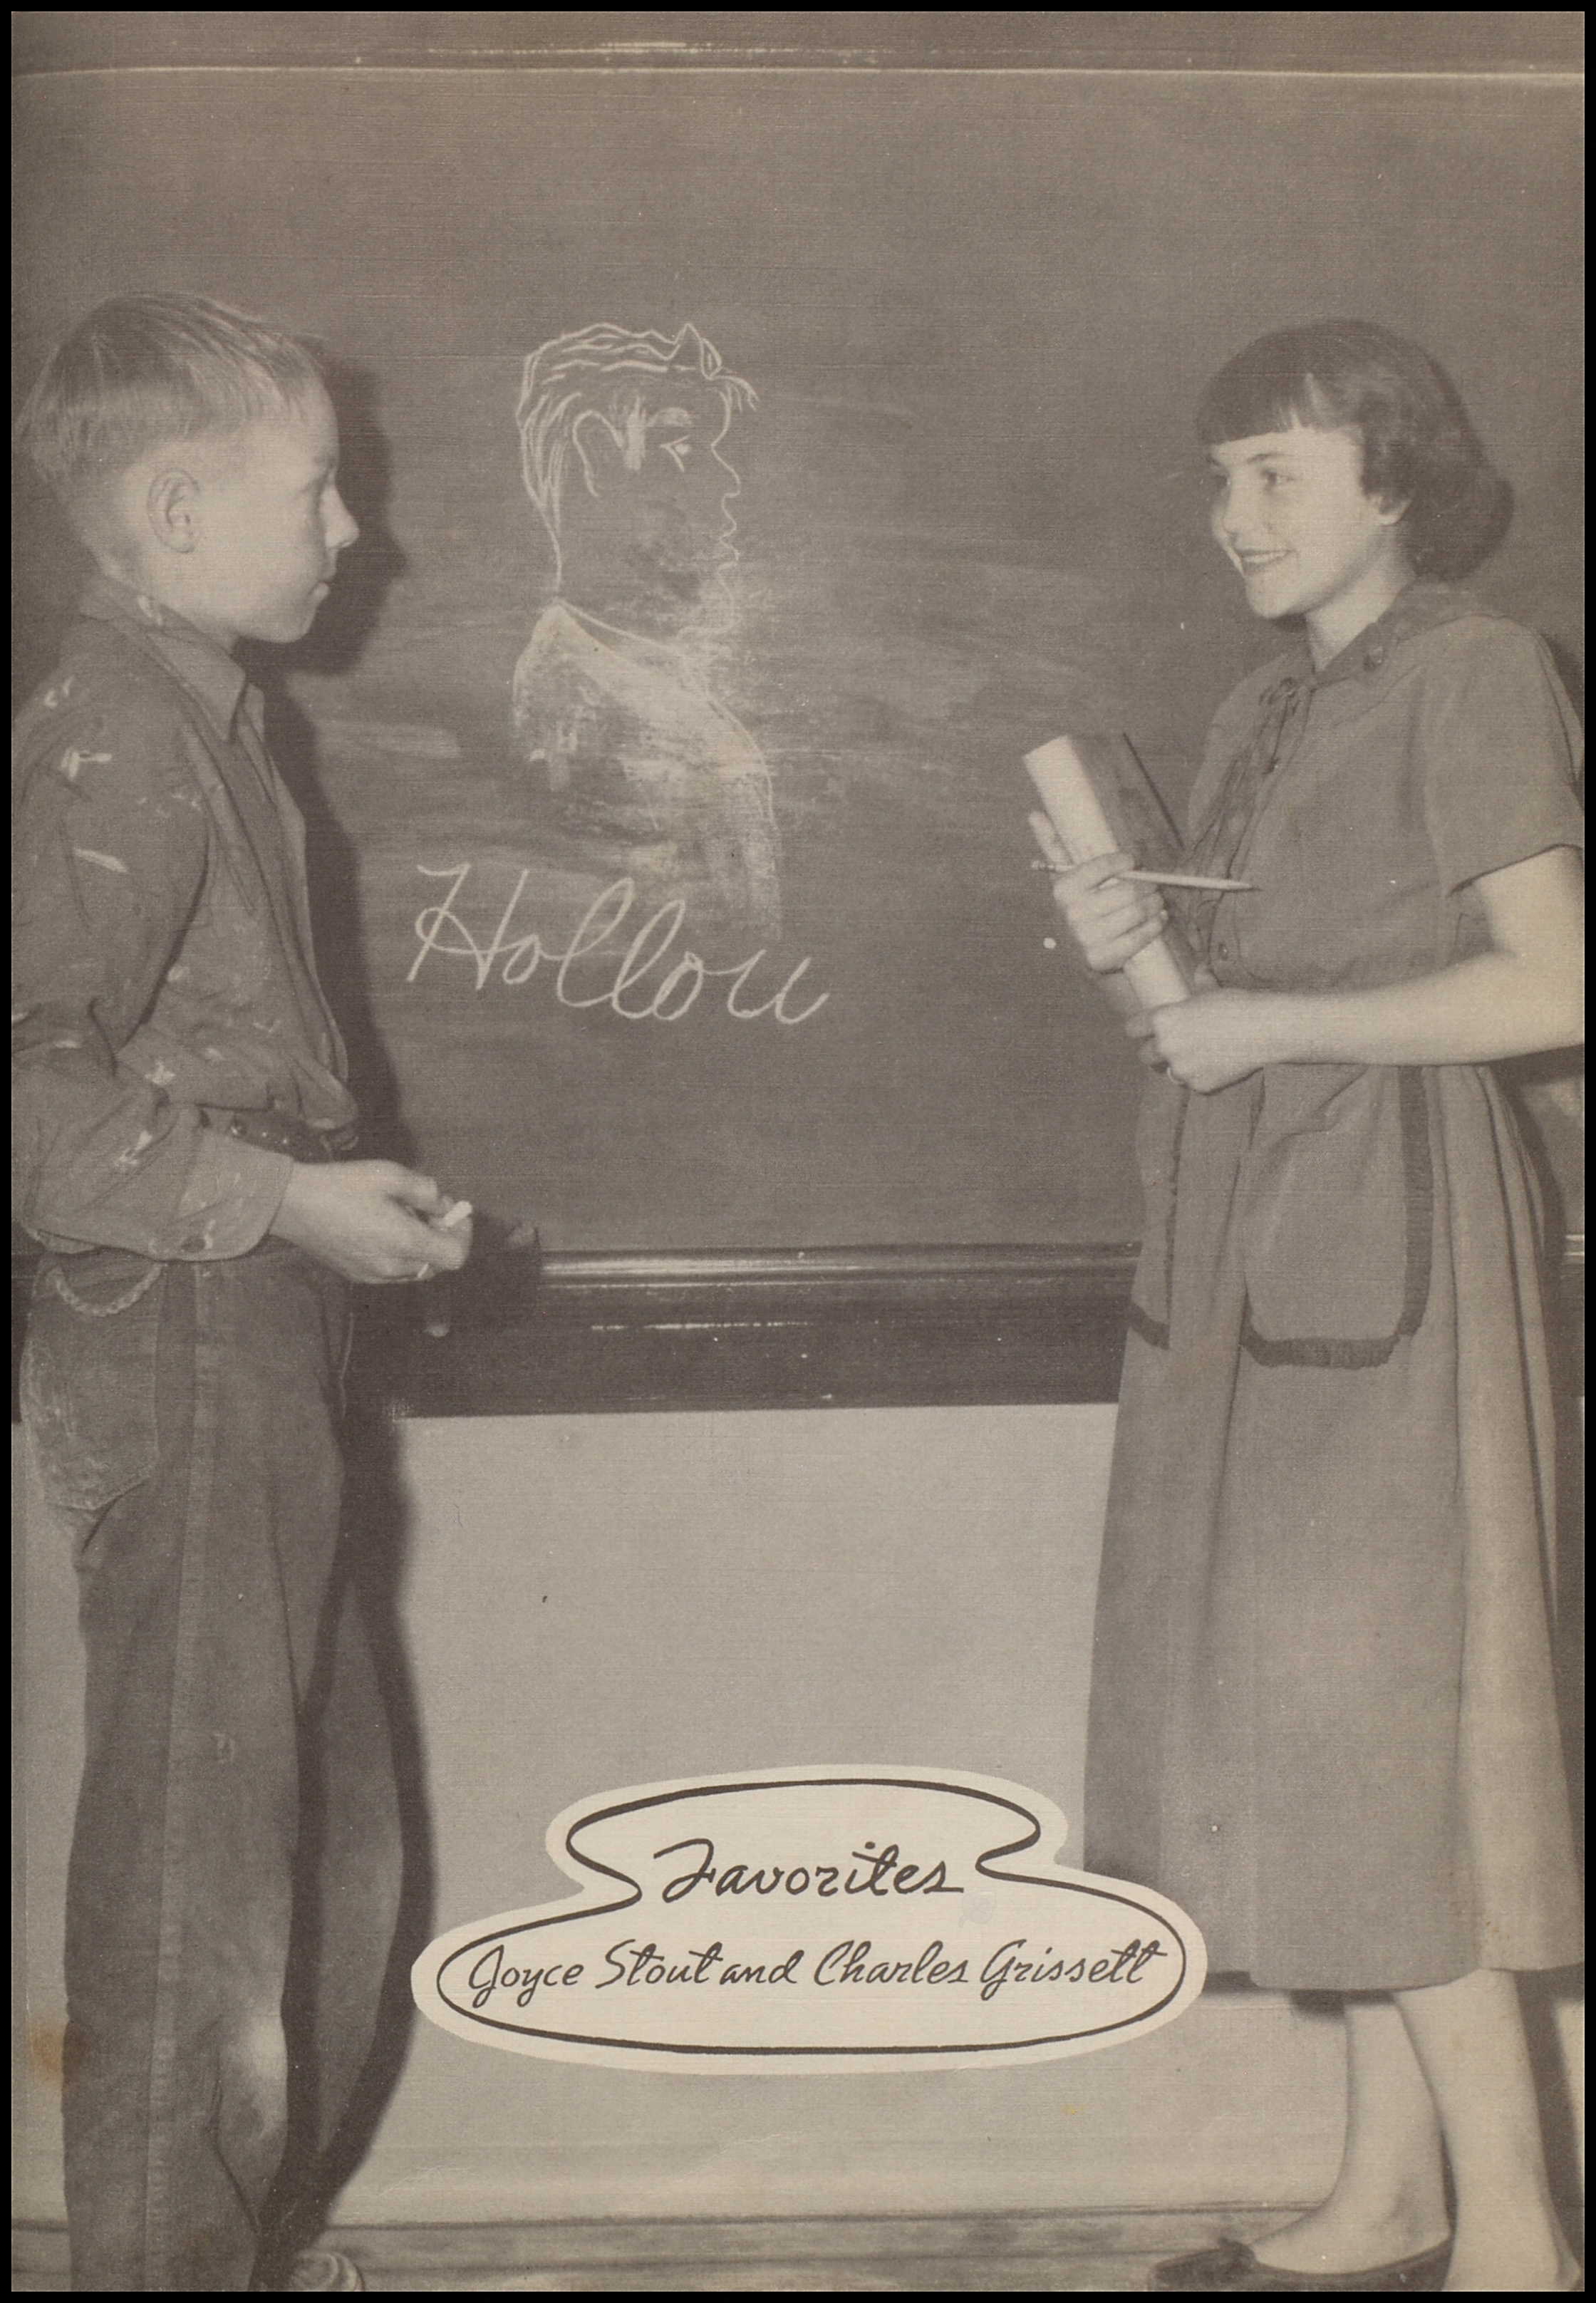 Hollou
Favorites
Joyce Stout and Charles Grissett